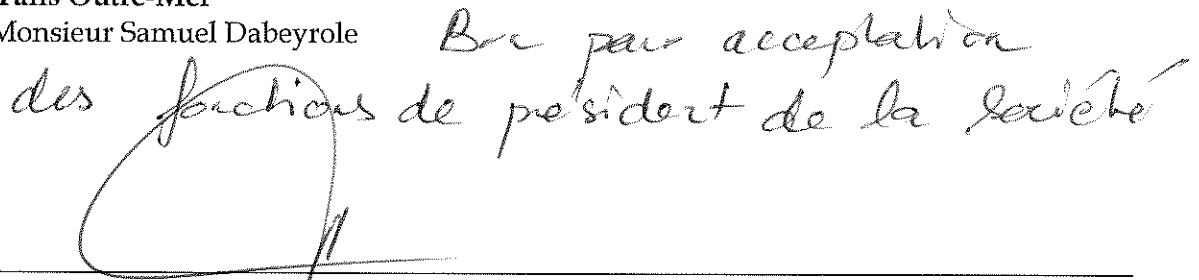 Trans Outre-Mer
Monsieur Samuel Dabeyrole Bon pour acceptation
des fonctions de président de la société